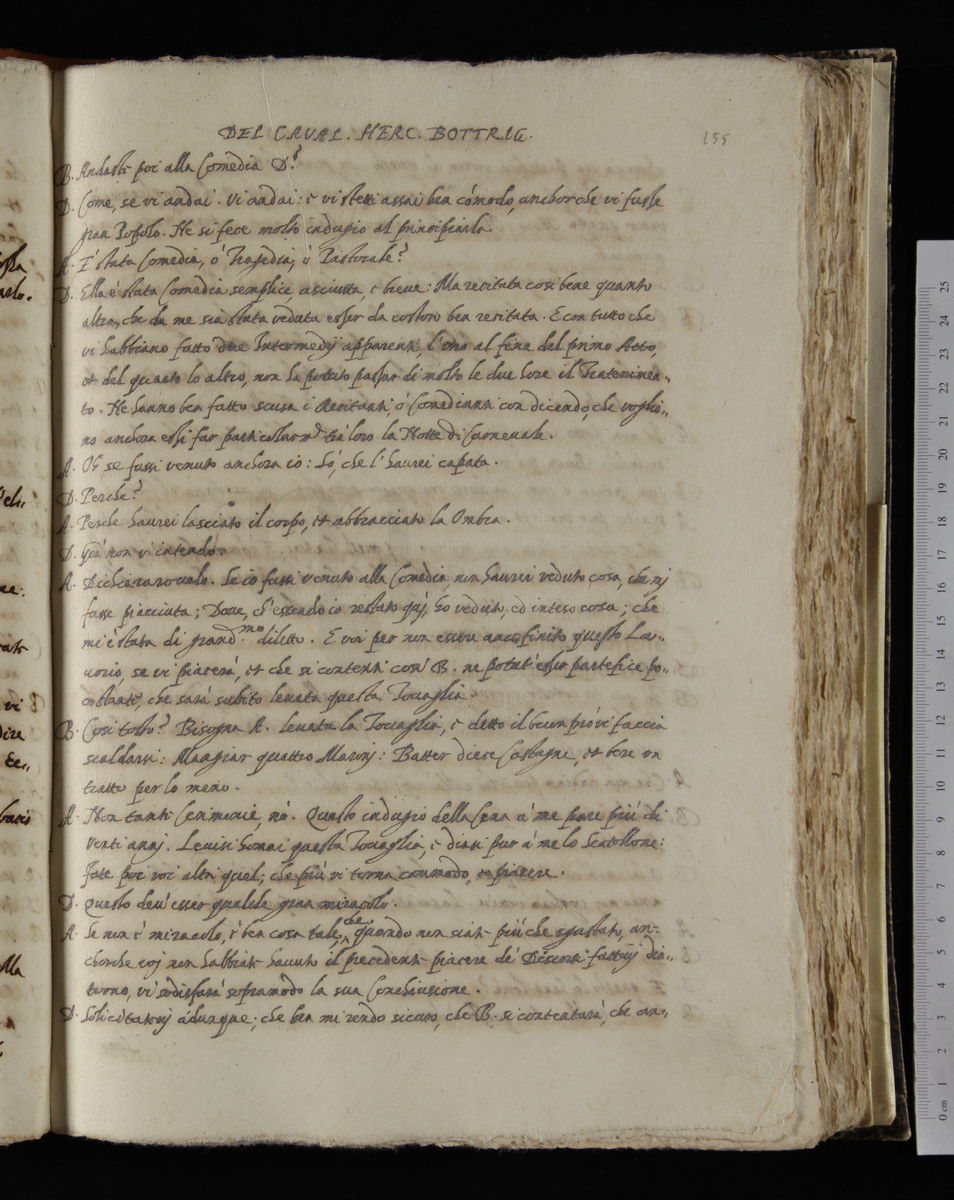 DEL CAVAL. HERC. BOTTRIG.
155
B. Andasti poi alla Comedia D.?
D. Come, se vi andai. Vi andai: e vi stetti assai ben cómodo, anchorche vi fusse
gran Popolo. Ne si fece molto indugio al principiarla.
A. E' stata Comedia, ó Tragedia, ó Pastorale?
D. Ella é stata Comedia semplice, asciutta, e breue: Ma recitata cosi bene quanto
altra, che da me sia stata veduta esser da costoro ben recitata. E con tutto che
vi habbiano fatto due Intermedij apparenti, l'uno al fine del primo Atto,
et del quarto lo altro, non ha potuto passar di molto le due hore il Trattenimen„
to. Ne hanno ben fatto scusa i Recitanti, ó Comedianti con dicendo, che voglio„
no anchora essi far particolarm.te trà loro la Notte di Carneuale.
A. Oh se fussi venuto anchora io: Só, che l'haurei capata.
D. Perche?
A. Perche haurei lasciato il corpo, et abbracciato la Ombra.
D. Già non v'intendo.
A. Dichiararouolo. Se io fussi venuto alla Comedia non haurei veduto cosa, che mj
fusse piacciuta; Doue, ch'essendo io restato quj, ho veduto, ed inteso cosa; che
mi é stata di grand.mo diletto. E voi per non essere anco finito questo La„
uorio, se vi piacerà, et che si contenti cosi B. ne potrete esser partefice po„
co stanti, che sarà subito leuata questa Touaglia.
B. Cosi tosto? Bisogna A. leuata la Touaglia, e detto il buon pro vi faccia
scaldarsi: Mangiar quattro Maronj: Batter diece Castagne, et bere un
tratto per lo meno.
A. Non tanti Cerimonie, nó. Questo indugio della Cena á me pare piú di
venti annj. Leuisi homai questa Touaglia, e diasi pur á me lo Scatollone:
Fate poi voi altri quel, che piú vi torna commodo, et piacere.
D. Questo deu'esser qualche gran miracolo.
A. Se non é miracolo, é ben cosa tale, che quando non siate piú che sgustato, an„
chorche voj non habbiate hauuto il precedente piacere de' Discorsi fattivj dia„
torno, vi sodisfará sopramodo la sua Conchiusione.
D. Solicitatevj adunque; che ben mi rendo sicuro, che B. si contentarà, che an„